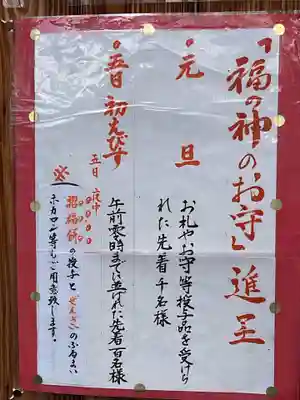 「福の神のお守」進呈
・元旦
お札やお守等授与品を受けら
れた先着千名様
・五日 初えびす
午前零時までに並ばれた先着百名様
五日
※招福餅の授与とぜんざいのふるまい
ホカロン等もご用意致します。